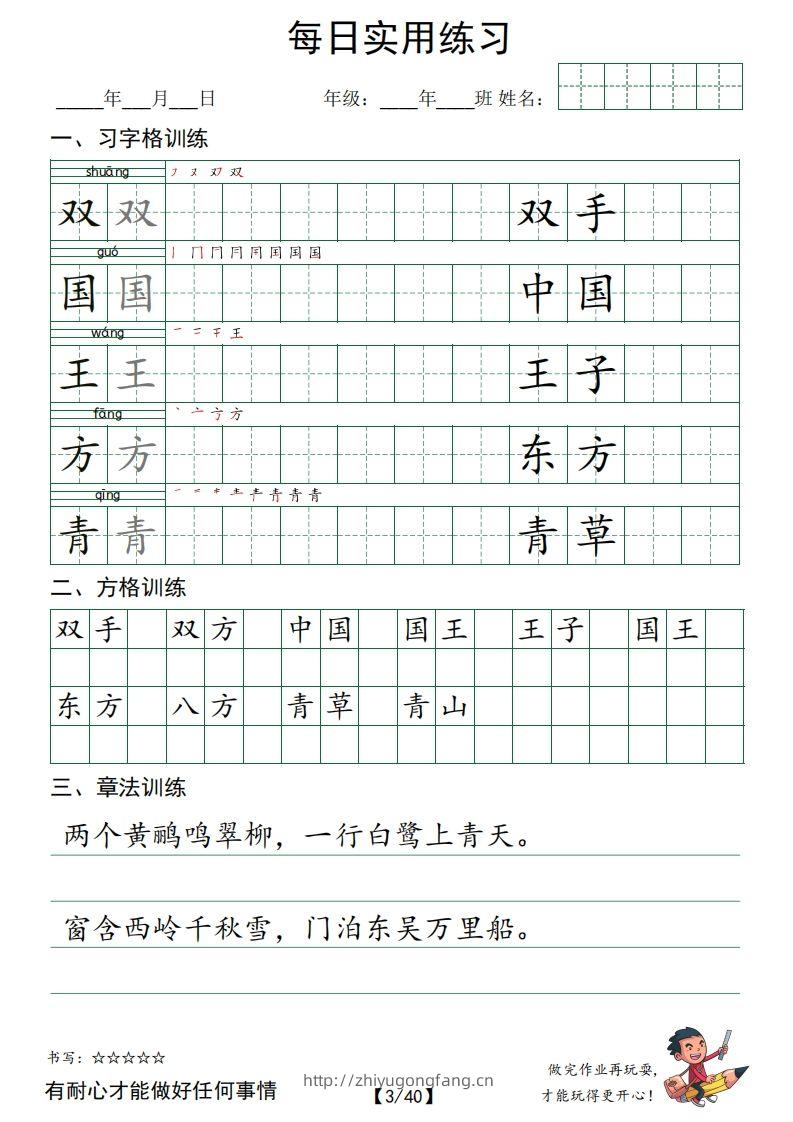 每日实用练习
_____年___月___日 年级：____年____班 姓名：
一、习字格训练
shuāng
双 双 双 手
guó
国 国 中 国
wáng
王 王 王 子
fāng
方 方 东 方
qīng
青 青 青 草
二、方格训练
双 手 双 方 中 国 国 王 王 子 国 王
东 方 八 方 青 草 青 山
三、章法训练
两个黄鹂鸣翠柳，一行白鹭上青天。
窗含西岭千秋雪，门泊东吴万里船。
书写：☆☆☆☆☆
有耐心才能做好任何事情
http://zhiyugongfang.cn
【3/40】
做完作业再玩耍，
才能玩得更开心！